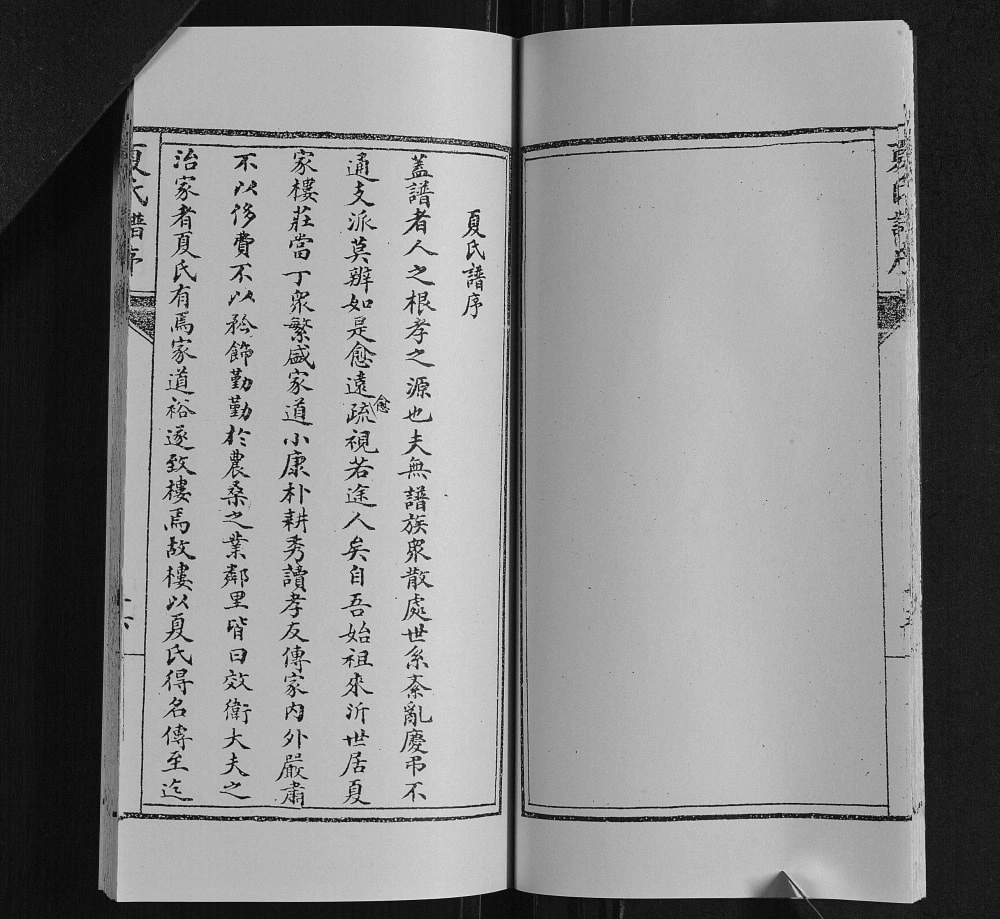 夏氏譜序
夏氏譜序
蓋譜者人之根孝之源也夫無譜族衆散處世系紊亂慶弔不
通支派莫辨如是愈遠愈疏視若途人矣自吾始祖來沂世居夏
家樓莊當丁衆繁盛家道小康朴耕秀讀孝友傳家內外嚴肅
不以侈費不以矜飾勤勤於農桑之業鄰里皆曰效衛大夫之
治家者夏氏有焉家道裕遂致樓焉故樓以夏氏得名傳至迄
夏氏譜序
十六